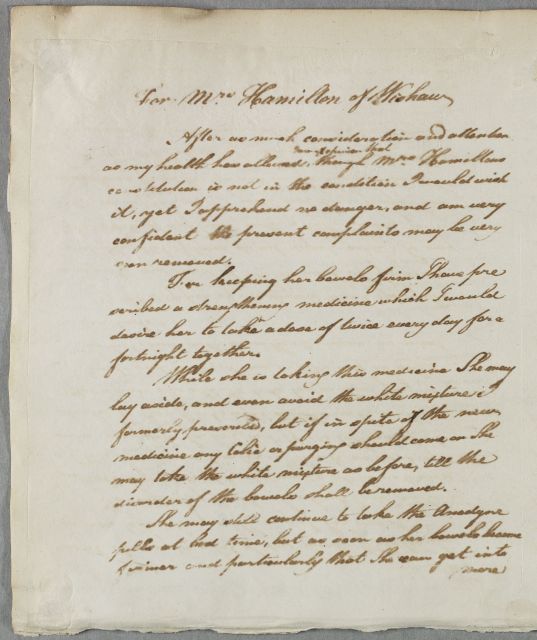 For Mrs Hamilton of Wishaw
After as much consideration and attention
I am of opinion that
as my health has allowed, though Mrs Hamiltons
constitution is not in the condition I would wish
it, yet I apprehend no danger, and am very
confident the present complaints may be very
soon removed.
For keeping her bowels firm I have pre
scribed a strengthening medicine which I would
desire her to take a dose of twice every day for a
fortnight together.
While she is taking this medicine She may
lay aside, and even avoid the white mixture I
formerly prescribed, but if in spite of the new
medicine any Colic or purging should come on She
may take the white mixture as before, till the
disorder of the bowels shall be removed.
She may still continue to take the Anodyne
pills at bed time, but as soon as her bowels become
firmer and particularly that She can get into
more